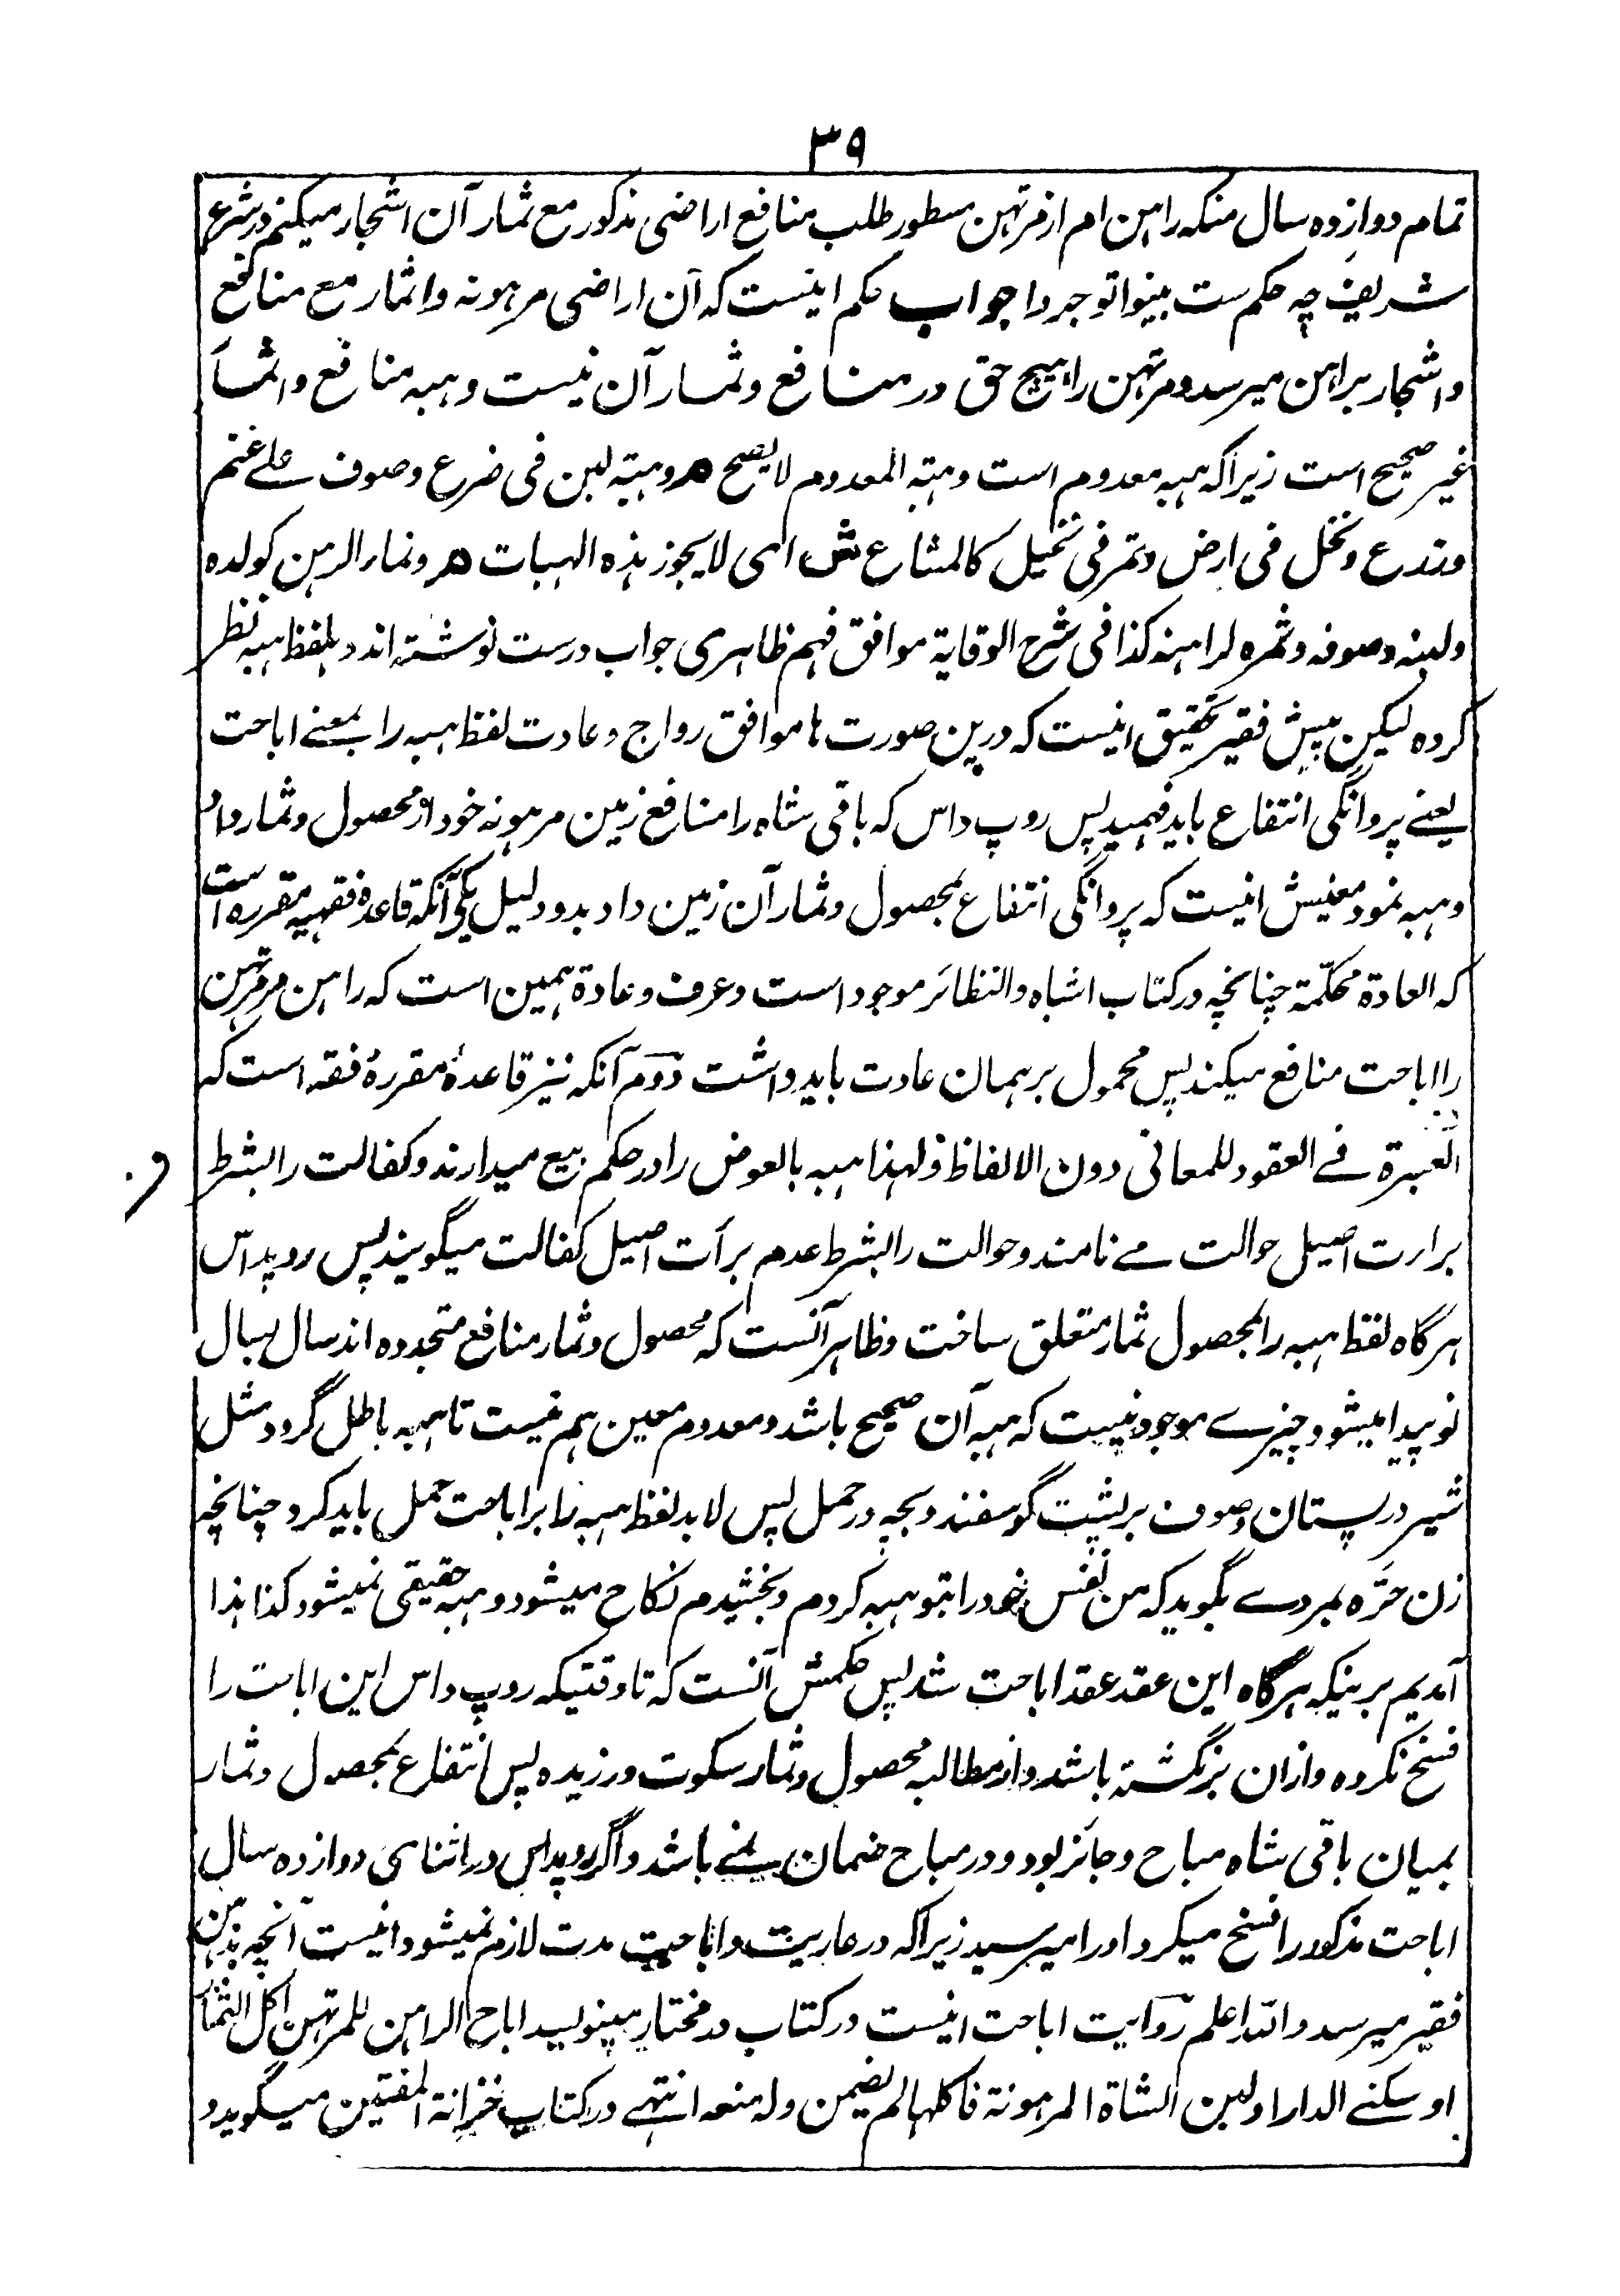 ٣٩
تمام دوازده سال منکه راهن ام از مرتهن مسطور طلب منافع اراضی مذکور مع ثمار آن اشجار میکنم در شرع
شریف چه حکم ست بینوا توجروا جواب حکم اینست که آن اراضی مرهونه و اثمار مع منافع
و اشجار براهن میرسد و مرتهن را هیچ حق در منافع و ثمار آن نیست و هبه منافع و اثمار
غیر صحیح است زیراکه هبه معدوم است وهبة المعدوم لا یصح هر وهبة لبن فی ضرع وصوف علے غنم
وزرع ونخل فی ارض وتمر فی نخیل کالمشاع ش ای لا یجوز هذه الهبات هر ونماء الرهن کولده
ولبنه وصوفه وثمره لراهنه کذا فی شرح الوقایة موافق فهم ظاهری جواب درست نوشته اند و بلفظ هبه نظر
کرده لیکن پیش فقیر تحقیق اینست که درین صورت ها موافق رواج و عادت لفظ هبه را بمعنے اباحت
یعنے پروانگی انتفاع باید فهمید پس روپ داس که باقی شاه را منافع زمین مرهونه خود از محصول و ثمار داد
و هبه نمود معنیش اینست که پروانگی انتفاع بمحصول و ثمار آن زمین داد بدو دلیل یکی آنکه قاعده فقهیه مقرره است
که العادة محکّمة چنانچه در کتاب اشباه والنظائر موجود است و عرف و عادة همین است که راهن مرتهن
را اباحت منافع میکند پس محمول بر همان عادت باید داشت دوم آنکه نیز قاعدهٔ مقررهٔ فقه است که
العبرة فے العقود للمعانی دون الالفاظ ولهذا هبه بالعوض را در حکم بیع میدارند و کفالت را بشرط
برارت اصیل حوالت مے نامند و حوالت را بشرط عدم برأت اصیل کفالت میگویند پس روپداس
هرگاه لفظ هبه را بمحصول ثمار متعلق ساخت و ظاهر آنست که محصول و ثمار منافع متجدده اند سال بسال
نو پیدا میشود چیزے موجود نیست که هبه آن صحیح باشد و معدوم معین هم نیست تا هبه باطل گردد مثل
شیر در پستان و صوف بر پشت گوسفند و بچه در حمل پس لابد لفظ هبه را بر اباحت حمل باید کرد چنانچه
زن حرّه بمردے بگوید که من نفس خود را بتو هبه کردم و بخشیدم نکاح میشود و هبه حقیقی نمیشود کذا هذا
آمدیم برینکه هرگاه این عقد عقد اباحت شد پس حکمش آنست که تا وقتیکه روپ داس این اباحت را
فسخ نکرده و ازان برنگشته باشد و از مطالبه محصول و ثمار سکوت ورزیده پس انتفاع بمحصول و ثمار
بمیان باقی شاه مباح و جائز بود و در مباح ضمان نمے باشد و اگر روپداس در اثنای دوازده سال
اباحت مذکور را فسخ میکرد او را میرسید زیراکه در عاریت و اباحت مدت لازم نمیشود اینست آنچه بذهن
فقیر میرسد والله اعلم روایت اباحت اینست در کتاب در مختار مینویسد اباح الراهن للمرتهن اکل الثمار
او سکنے الدار او لبن الشاة المرهونة فاکلها لم یضمن وله منعه انتهے در کتاب خزانة المفتین میگوید و